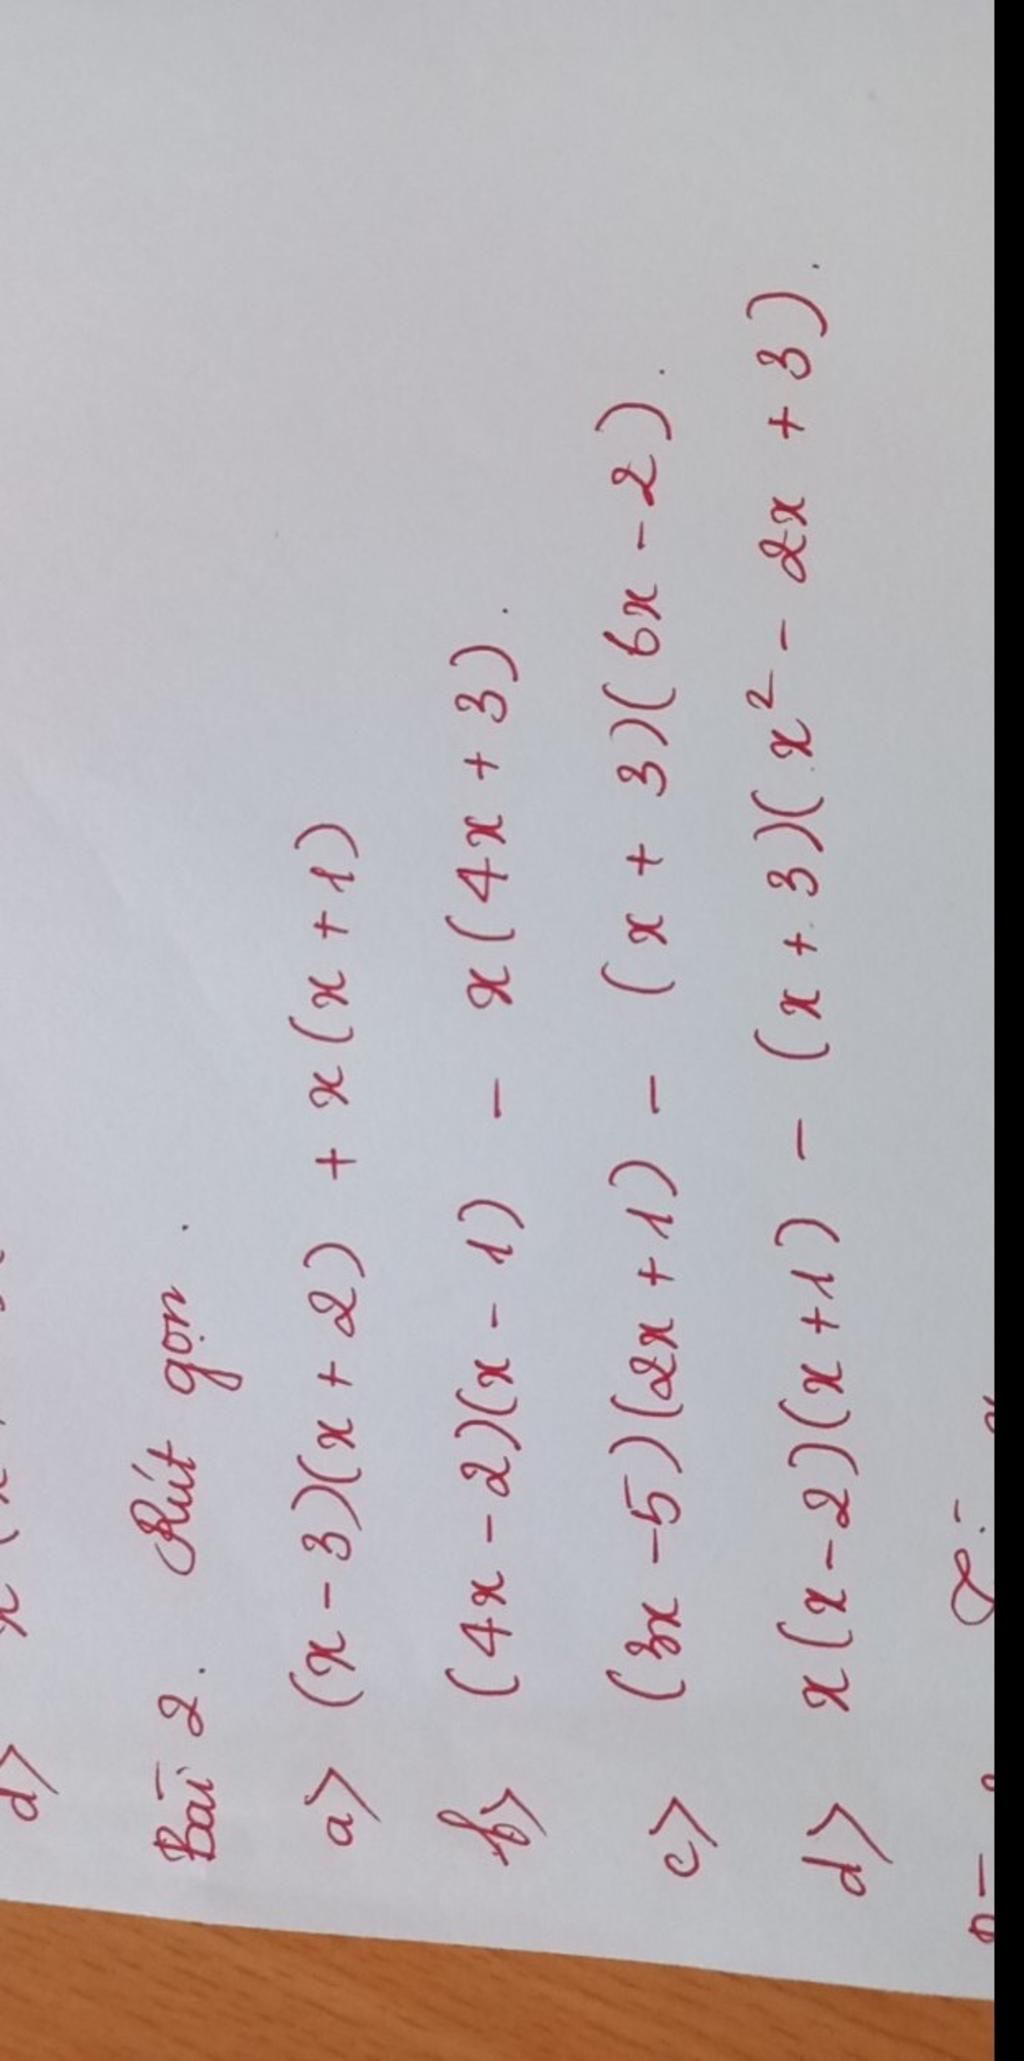 d>
Bài 2. Rút gọn.
a> (x - 3)(x + 2) + x(x + 1)
b> (4x - 2)(x - 1) - x(4x + 3).
c> (3x - 5)(2x + 1) - (x + 3)(6x - 2).
d> x(x - 2)(x + 1) - (x + 3)(x² - 2x + 3).